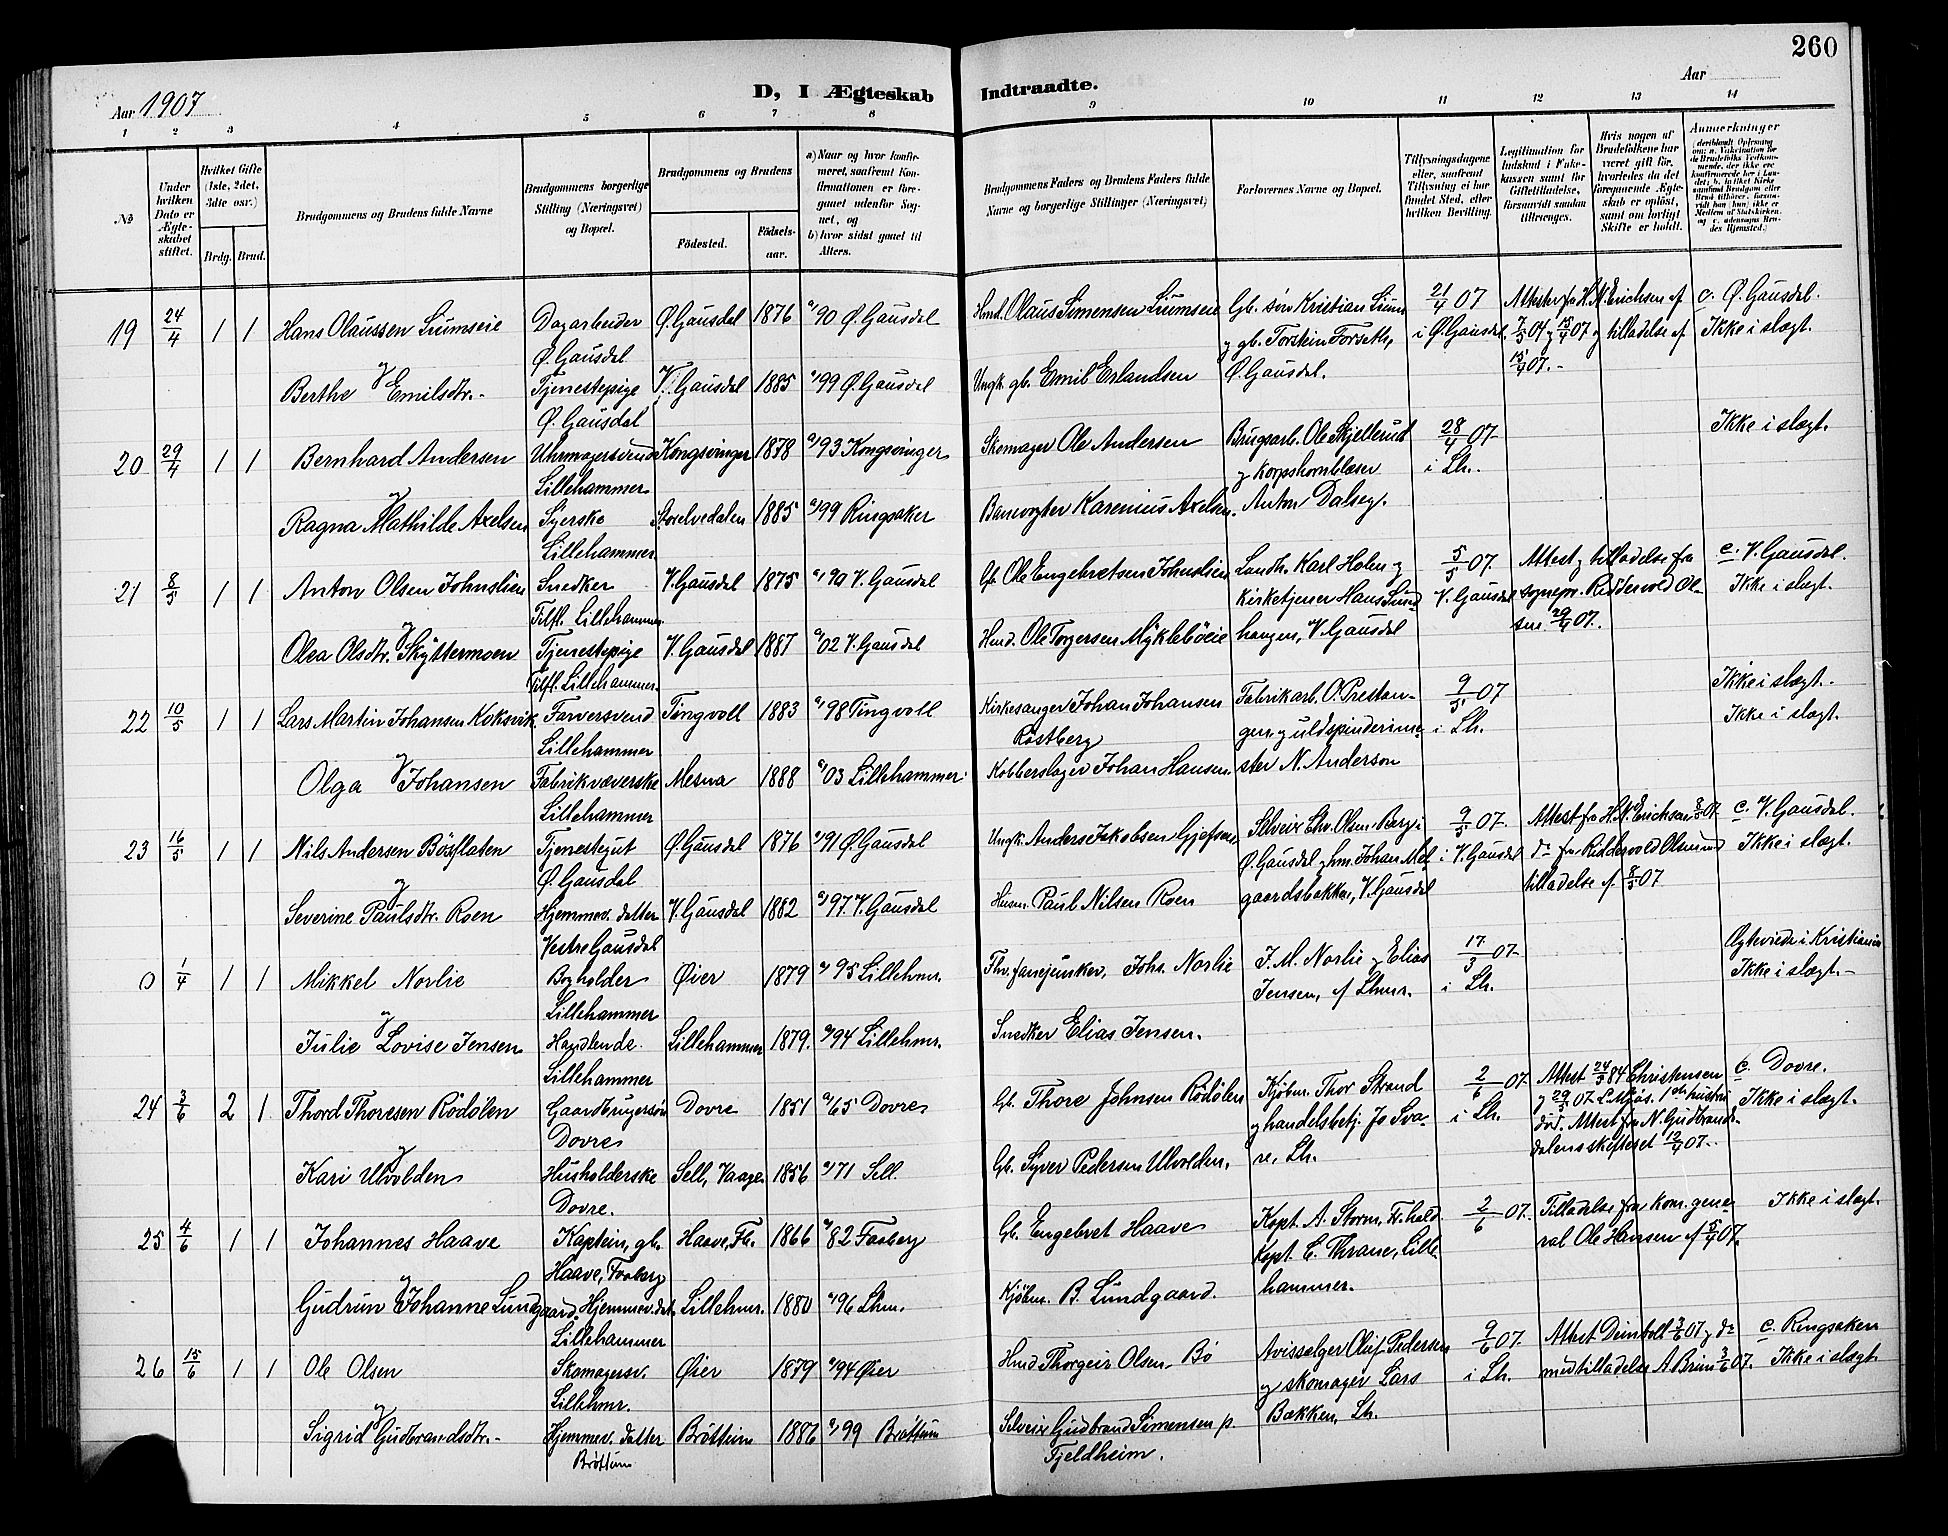 260
Aar 1907
D, I Ægteskab Indtraadte.
Aar
1 2 3 4 5 6 7 8 9 10 11 12 13 14
No
Under hvilken Dato er Ægteskabet stiftet.
Hvilket Gifte (1ste, 2det, 3die osv.)
Brdg. Brud.
Brudgommens og Brudens fulde Navne
Brudgommens borgerlige Stilling (Næringsvei) og Bopæl.
Brudgommens og Brudens
Fødested.
Fødselsaar.
a) Naar og hvor konfirmeret, saafremt Konfirmationen er foregaaet udenfor Sognet, og
b) hvor sidst gaaet til Alters.
Brudgommens Faders og Brudens Faders fulde Navne og borgerlige Stillinger (Næringsvei)
Forlovernes Navne og Bopæl.
Tillysningsdagene eller, saafremt Tillysning ei har fundet Sted, efter hvilken Bevilling.
Legitimation for Indskud i Enkekassen samt for Giftetilladelse, forsaavidt saadan tiltrænges.
Hvis nogen af Brudefolkene har været gift før, hvorledes da det foregaaende Ægteskab er opløst, samt om lovligt Skifte er holdt.
Anmærkninger
19 24/4 1 1 Hans Olaussen Liumseie Dagarbeider Ø. Gausdal 1876 a/90 Ø. Gausdal Hmd. Olaus Simensen Liumseie Gb. søn Kristian Lium 21/4 07 Attester fra H. N. Erichsen af c. Ø. Gausdal.
Ø. Gausdal y gb. Torstein Forseth, i Ø. Gausdal. 7/3 04 y 15/4 07 y tilladelse af Ikke i slægt.
Berthe Emilsdtr. Tjenestepige V. Gausdal 1885 a/99 Ø. Gausdal Ungk. gb. Emil Erlandsen Ø. Gausdal. 15/4 07.
Ø. Gausdal
20 29/4 1 1 Bernhard Andersen Uhrmagersvend Kongsvinger 1878 a/93 Kongsvinger Skomager Ole Andersen Brugsarb. Ole Skjellerud 28/4 07 Ikke i slægt.
Lillehammer y korpshornblæser i Lh.
Ragna Mathilde Axelsen Syerske Storelvedalen 1885 a/99 Ringsaker Banevogter Karenius Axelsen. Anton Dalseg.
Lillehammer
21 8/5 1 1 Anton Olsen Johnslien Snedker V. Gausdal 1875 a/90 V. Gausdal Gb. Ole Engebretsen Johnslien Landh. Karl Holen y 5/5 07. Attest y tilladelse fra c. V. Gausdal.
Tilfl. Lillehammer kirketjener Hans Sund V. Gausdal sognepr. Riddervold Ol- Ikke i slægt.
Olea Olsdtr. Skyttermoen Tjenestepige V. Gausdal 1887 a/02 V. Gausdal Hmd. Ole Torgersen Mykleböeie hangen, V. Gausdal sen 29/4 07.
Tilfl. Lillehammer. Ikke i slægt.
22 10/5 1 1 Lars Martin Johansen Koksvik Farversvend Tingvoll 1883 a/98 Tingvoll Kirkesanger Johan Johansen Fabrikarb. O. Prestan- 9/5 07 Ikke i slægt.
Lillehammer Røstberg gen y uldspinderime- i Lh.
Olga Johansen Fabrikvæverske Mesna 1888 a/03 Lillehammer Kobberslager Johan Hansen ster N. Anderson
Lillehammer
23 16/5 1 1 Nils Andersen Bösflaten Tjenestegut Ø. Gausdal 1876 a/91 Ø. Gausdal Ungk. Anders Jakobsen Selveier Chr. Olsen Berg i 9/5 07. Attest fra H. N. Erichsen 8/5 07. c. V. Gausdal.
Ø. Gausdal Ø. Gausdal y hm. Johan Mel- i V. Gausdal do fra Riddervold Olsen med Ikke i slægt.
Severine Paulsdtr. Roen Hjemmev. datter V. Gausdal 1882 a/97 V. Gausdal Husm. Paul Nilsen Roen gaardsbakken, V. Gausdal tilladelse af 8/5 07
Vestre Gausdal
0 1/4 1 1 Mikkel Norlie Bogholder Øier 1879 a/95 Lillehmr. Fhv. fanejunker, Johs. Norlie J. M. Norlie y Elias 17/3 07 Ægteviede i Kristiania
Lillehammer Jensen, af Lhmr. i Lh. Ikke i slægt.
Julie Lovise Jensen Handlende Lillehammer 1879. a/94 Lillehmr. Snedker Elias Jensen.
Lillehammer
24 3/6 2 1 Thord Thoresen Rödölen Gaardbrugersön Dovre 1851 a/65 Dovre Gb. Thore Johnsen Rödölen Kjøbm. Thor Strand 2/6 07. Attest 24/5 84 Christensen c. Dovre.
Dovre y handelsbetj. Jo Sva- i Lh. y 29/5 07 L. Mjøs. 1ste hustru Ikke i slægt.
død. Attest fra N. Gudbrands-
Kari Ulvolden Husholderske Sell, Vaage 1856 a/71 Sell. Gb. Syver Pedersen Ulvolden. re, Lh. dalens skifteret 12/4 07.
Dovre.
25 4/6 1 1 Johannes Haave Kaptein, gb. Haave, Fb. 1866 a/82 Faaberg Gb. Engebret Haave Kapt. A. Storm, Fr.hald 2/6 07. Tilladelse fra kom. gene- Ikke i slægt.
Haave, Faaberg Kapt. C. Thrane, Lille- ral Ole Hansen af 5/4 07.
Gudrun Johanne Lundgaard Hjemmev. dat. Lillehmr. 1880 a/96 Lhm. Kjøbm. B. Lundgaard. hammer.
Lillehammer
26 15/6 1 1 Ole Olsen Skomagersv. Øier 1879 a/94 Øier Hmd Thorgeir Olsen Bö Avisselger Oluf Pedersen 9/6 07. Attest Deinboll 3/6 07 y do c. Ringsaker
Lillehmr. y skomager Lars i Lh. med tilladelse A. Brun 3/6 07. Ikke i slægt.
Sigrid Gudbrandsdtr. Hjemmev. datter Bröttum 1886 a/99 Bröttum Selveier Gudbrand Simensen p. Bakken, Lh.
Bröttum Fjeldheim.